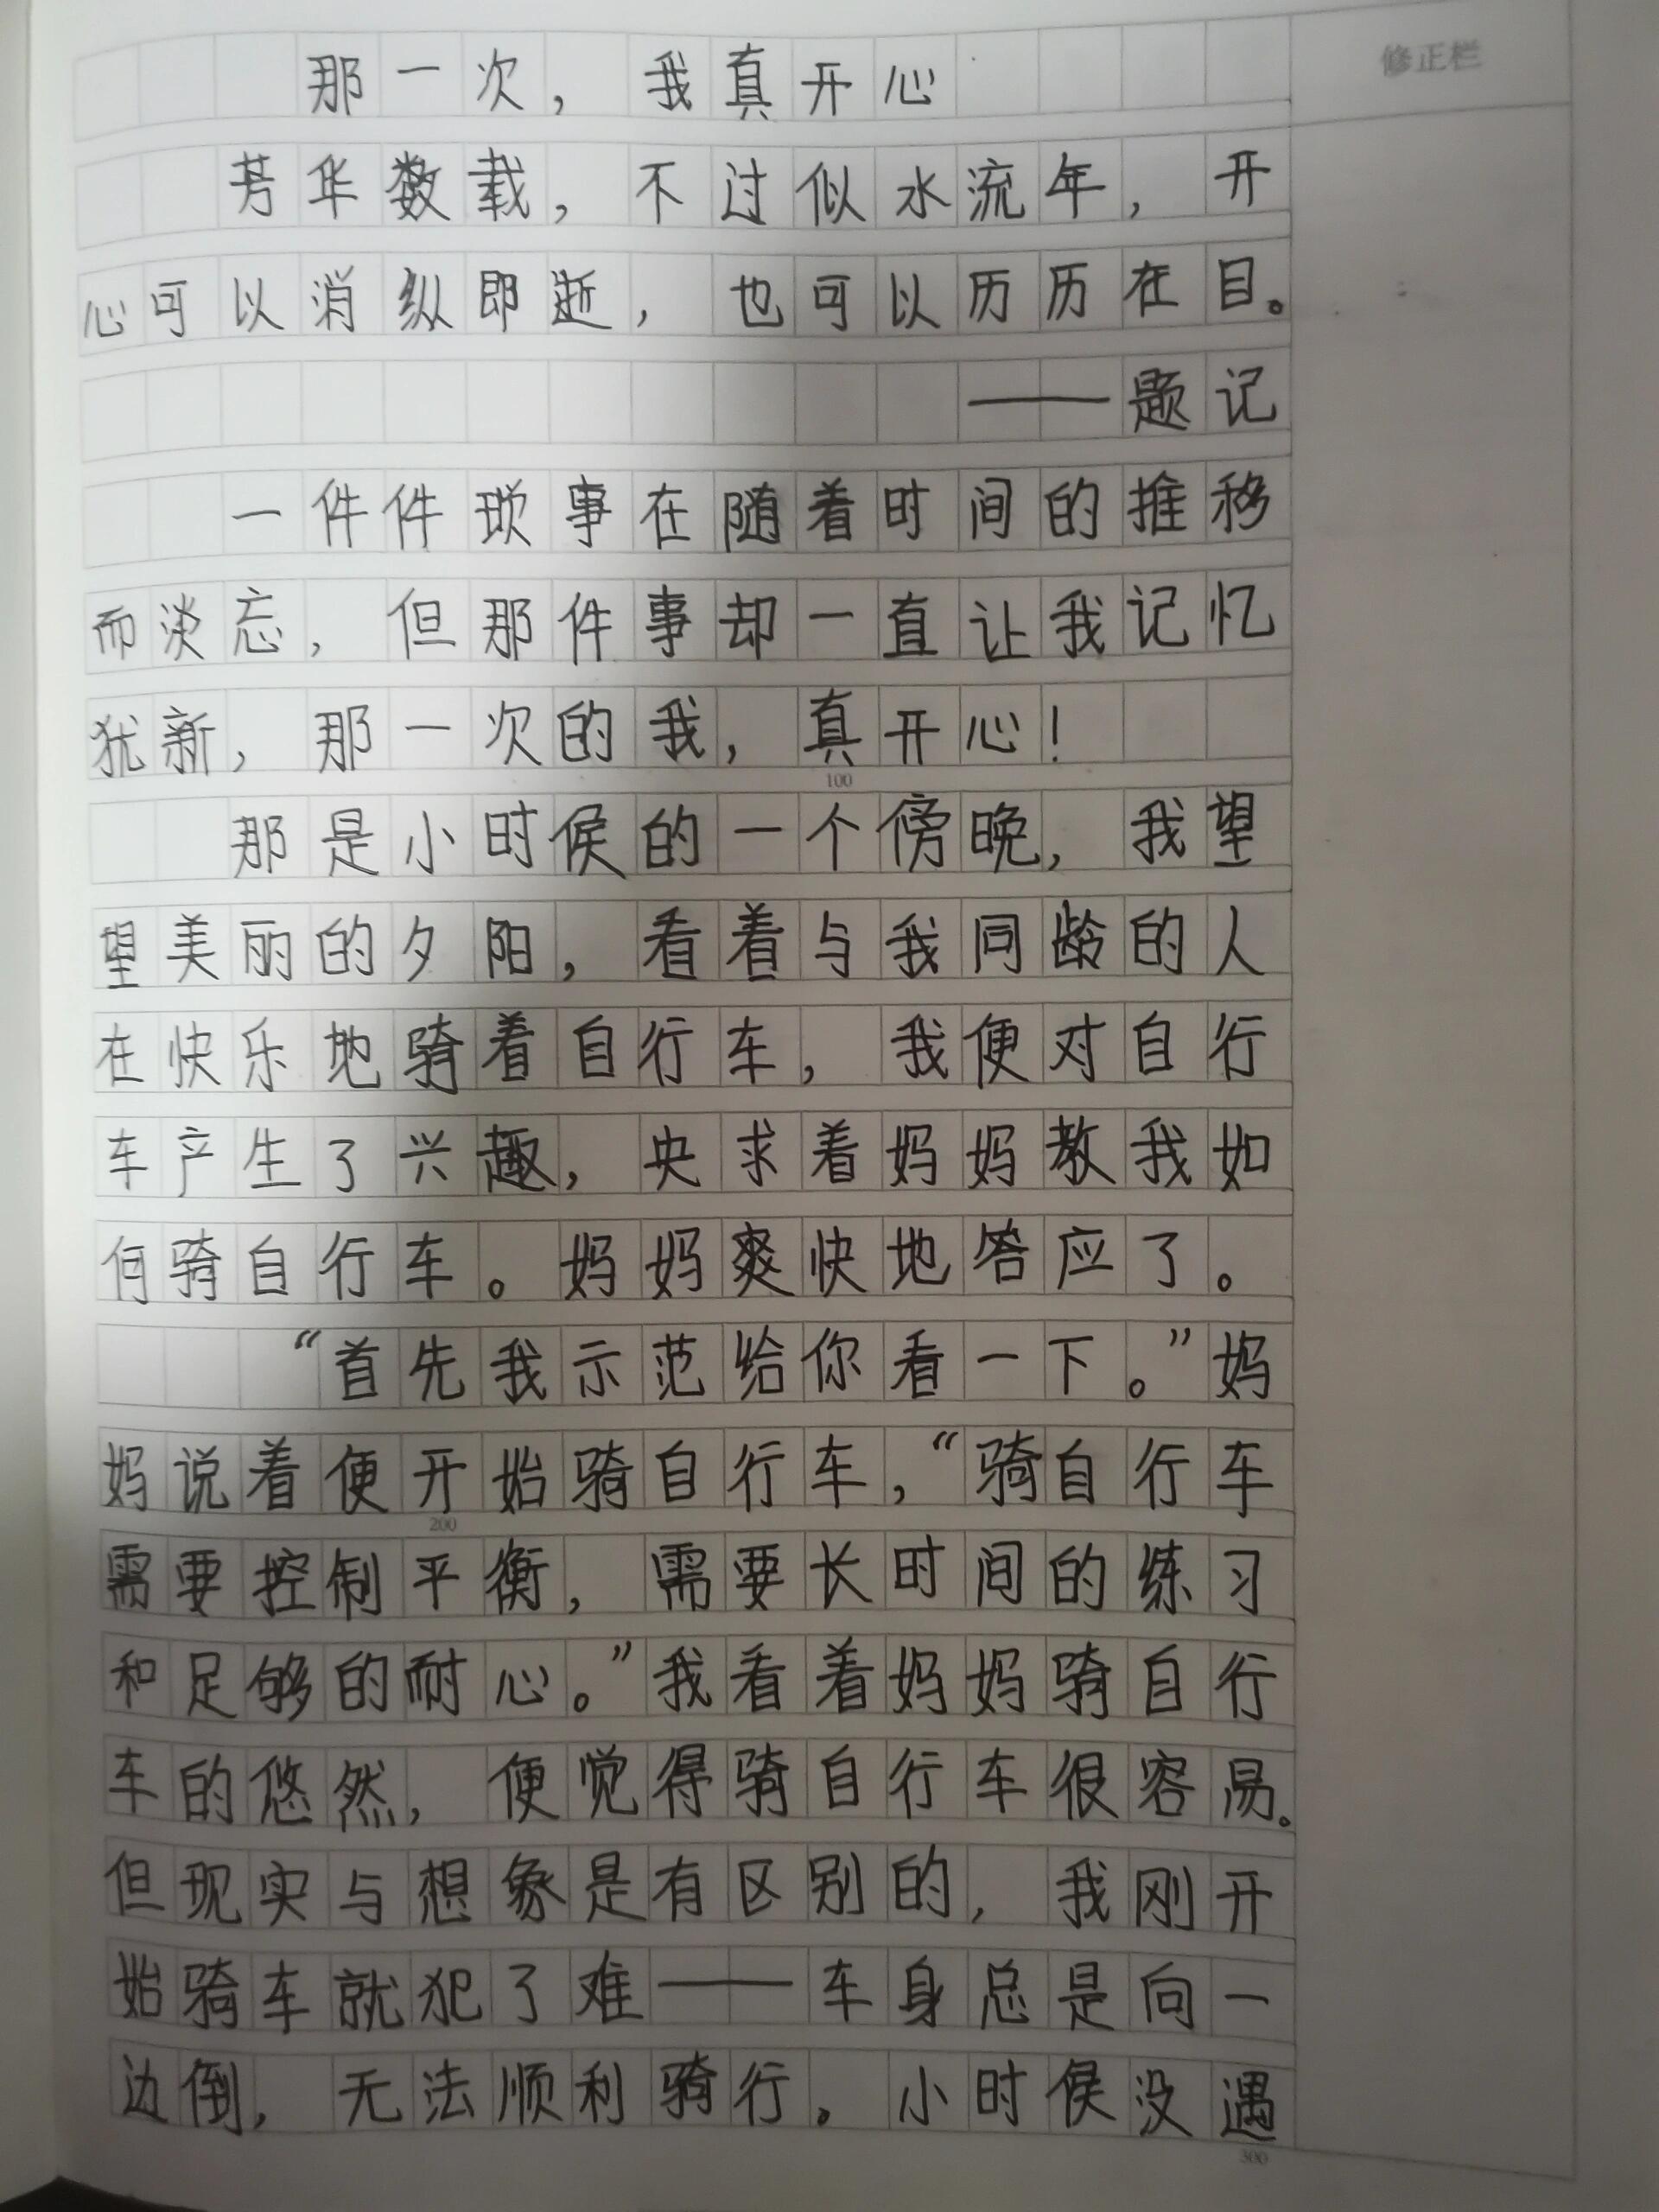 那一次，我真开心
修正栏
芳华数载，不过似水流年，开
心可以消纵即逝，也可以历历在目。
——题记
一件件琐事在随着时间的推移
而淡忘，但那件事却一直让我记忆
犹新，那一次的我，真开心！
100
那是小时侯的一个傍晚，我望
望美丽的夕阳，看着与我同龄的人
在快乐地骑着自行车，我便对自行
车产生了兴趣，央求着妈妈教我如
何骑自行车。妈妈爽快地答应了。
“首先我示范给你看一下。”妈
妈说着便开始骑自行车，“骑自行车
200
需要控制平衡，需要长时间的练习
和足够的耐心。”我看着妈妈骑自行
车的悠然，便觉得骑自行车很容易。
但现实与想象是有区别的，我刚开
始骑车就犯了难——车身总是向一
边倒，无法顺利骑行。小时侯没遇
300